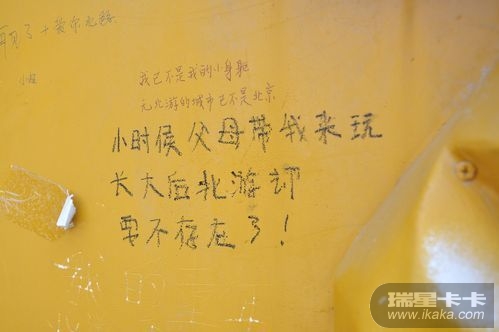 小时候父母带我来玩
长大后北游却
要不存在了！
我已不是我的小身躯
无北游的城市已不是北京
瑞星卡卡
www.ikaka.com